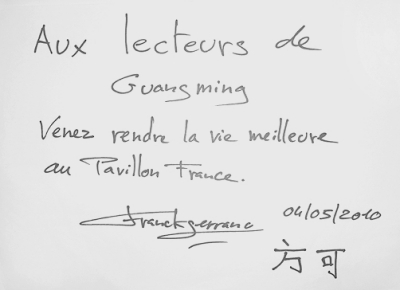 Aux lecteurs de
Guangming
Venez rendre la vie meilleure
au Pavillon France.
Franck Serrano 04/05/2010
方可